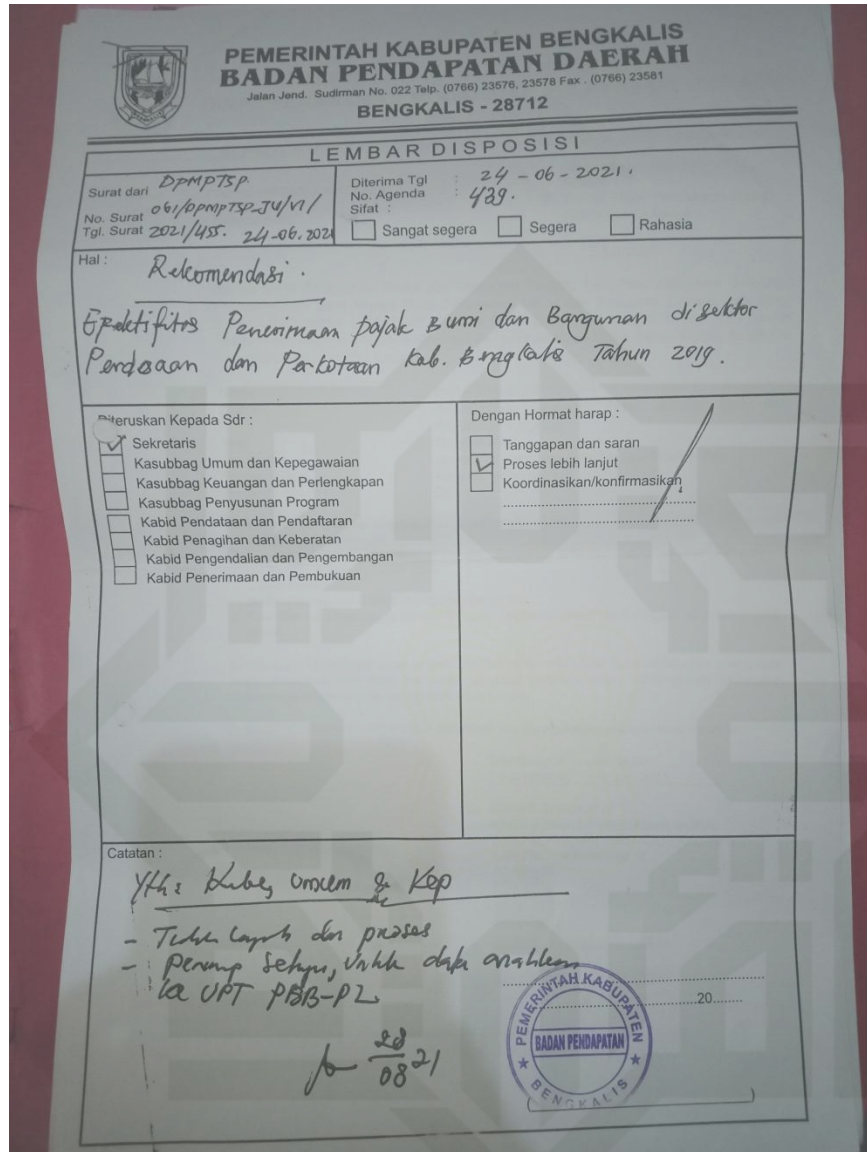 PEMERINTAH KABUPATEN BENGKALIS
BADAN PENDAPATAN DAERAH
Jalan Jend. Sudirman No. 022 Telp. (0766) 23576, 23578 Fax . (0766) 23581
BENGKALIS - 28712
BENGKALIS
LEMBAR DISPOSISI
Surat dari DPMPTSP
No. Surat 061/DPMPTSP-JU/VI/
Tgl. Surat 2021/455. 24-06.2021
Diterima Tgl : 24 - 06 - 2021.
No. Agenda : 439.
Sifat :
Sangat segera Segera Rahasia
Hal :
Rekomendasi.
Efektifitas Penerimaan pajak Bumi dan Bangunan disektor
Perdesaan dan Perkotaan Kab. Bengkalis Tahun 2019.
Diteruskan Kepada Sdr :
Sekretaris
Kasubbag Umum dan Kepegawaian
Kasubbag Keuangan dan Perlengkapan
Kasubbag Penyusunan Program
Kabid Pendataan dan Pendaftaran
Kabid Penagihan dan Keberatan
Kabid Pengendalian dan Pengembangan
Kabid Penerimaan dan Pembukuan
Dengan Hormat harap :
Tanggapan dan saran
Proses lebih lanjut
Koordinasikan/konfirmasikan
Catatan :
Yth : Umum & Kep
- dan proses
- data arahkan
ke UPT PBB-P2
28
08 21
20........
PEMERINTAH KABUPATEN
BADAN PENDAPATAN
BENGKALIS